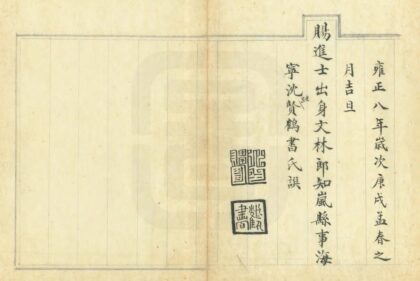 雍正八年歲次庚戌孟春之
月吉旦
賜進士出身文林郎知嵐縣事海
寧沈繼賢鶴書氏譔